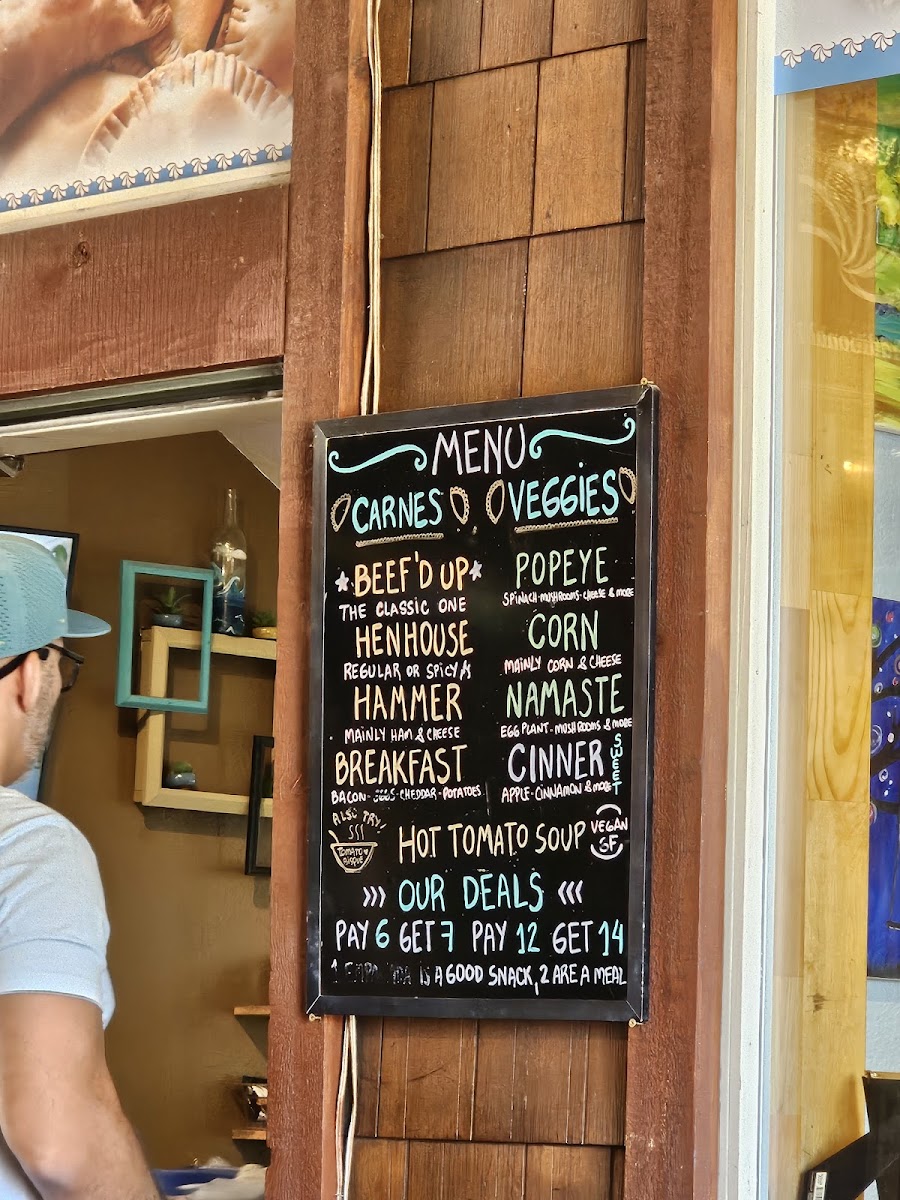 MENU
CARNES
VEGGiES
BEEF'D UP
THE CLASSIC ONE
HENHOUSE
REGULAR OR SPICY
HAMMER
MAINLY HAM & CHEESE
BREAKFAST
BACON-EGGS-CHEDDAR-POTATOES
POPEYE
SPINACH-MUSHROOMS-CHEESE & MORE
CORN
MAINLY CORN & CHEESE
NAMASTE
EGG PLANT-MUSHROOMS & MORE
CINNER
SWEET
APPLE-CINNAMON & MORE
ALSO TRY!
TOMATO
BISQUE
HOT TOMATO SOUP
VEGAN
GF
>>> OUR DEALS <<<
PAY 6 GET 7 PAY 12 GET 14
1 IS A GOOD SNACK, 2 ARE A MEAL